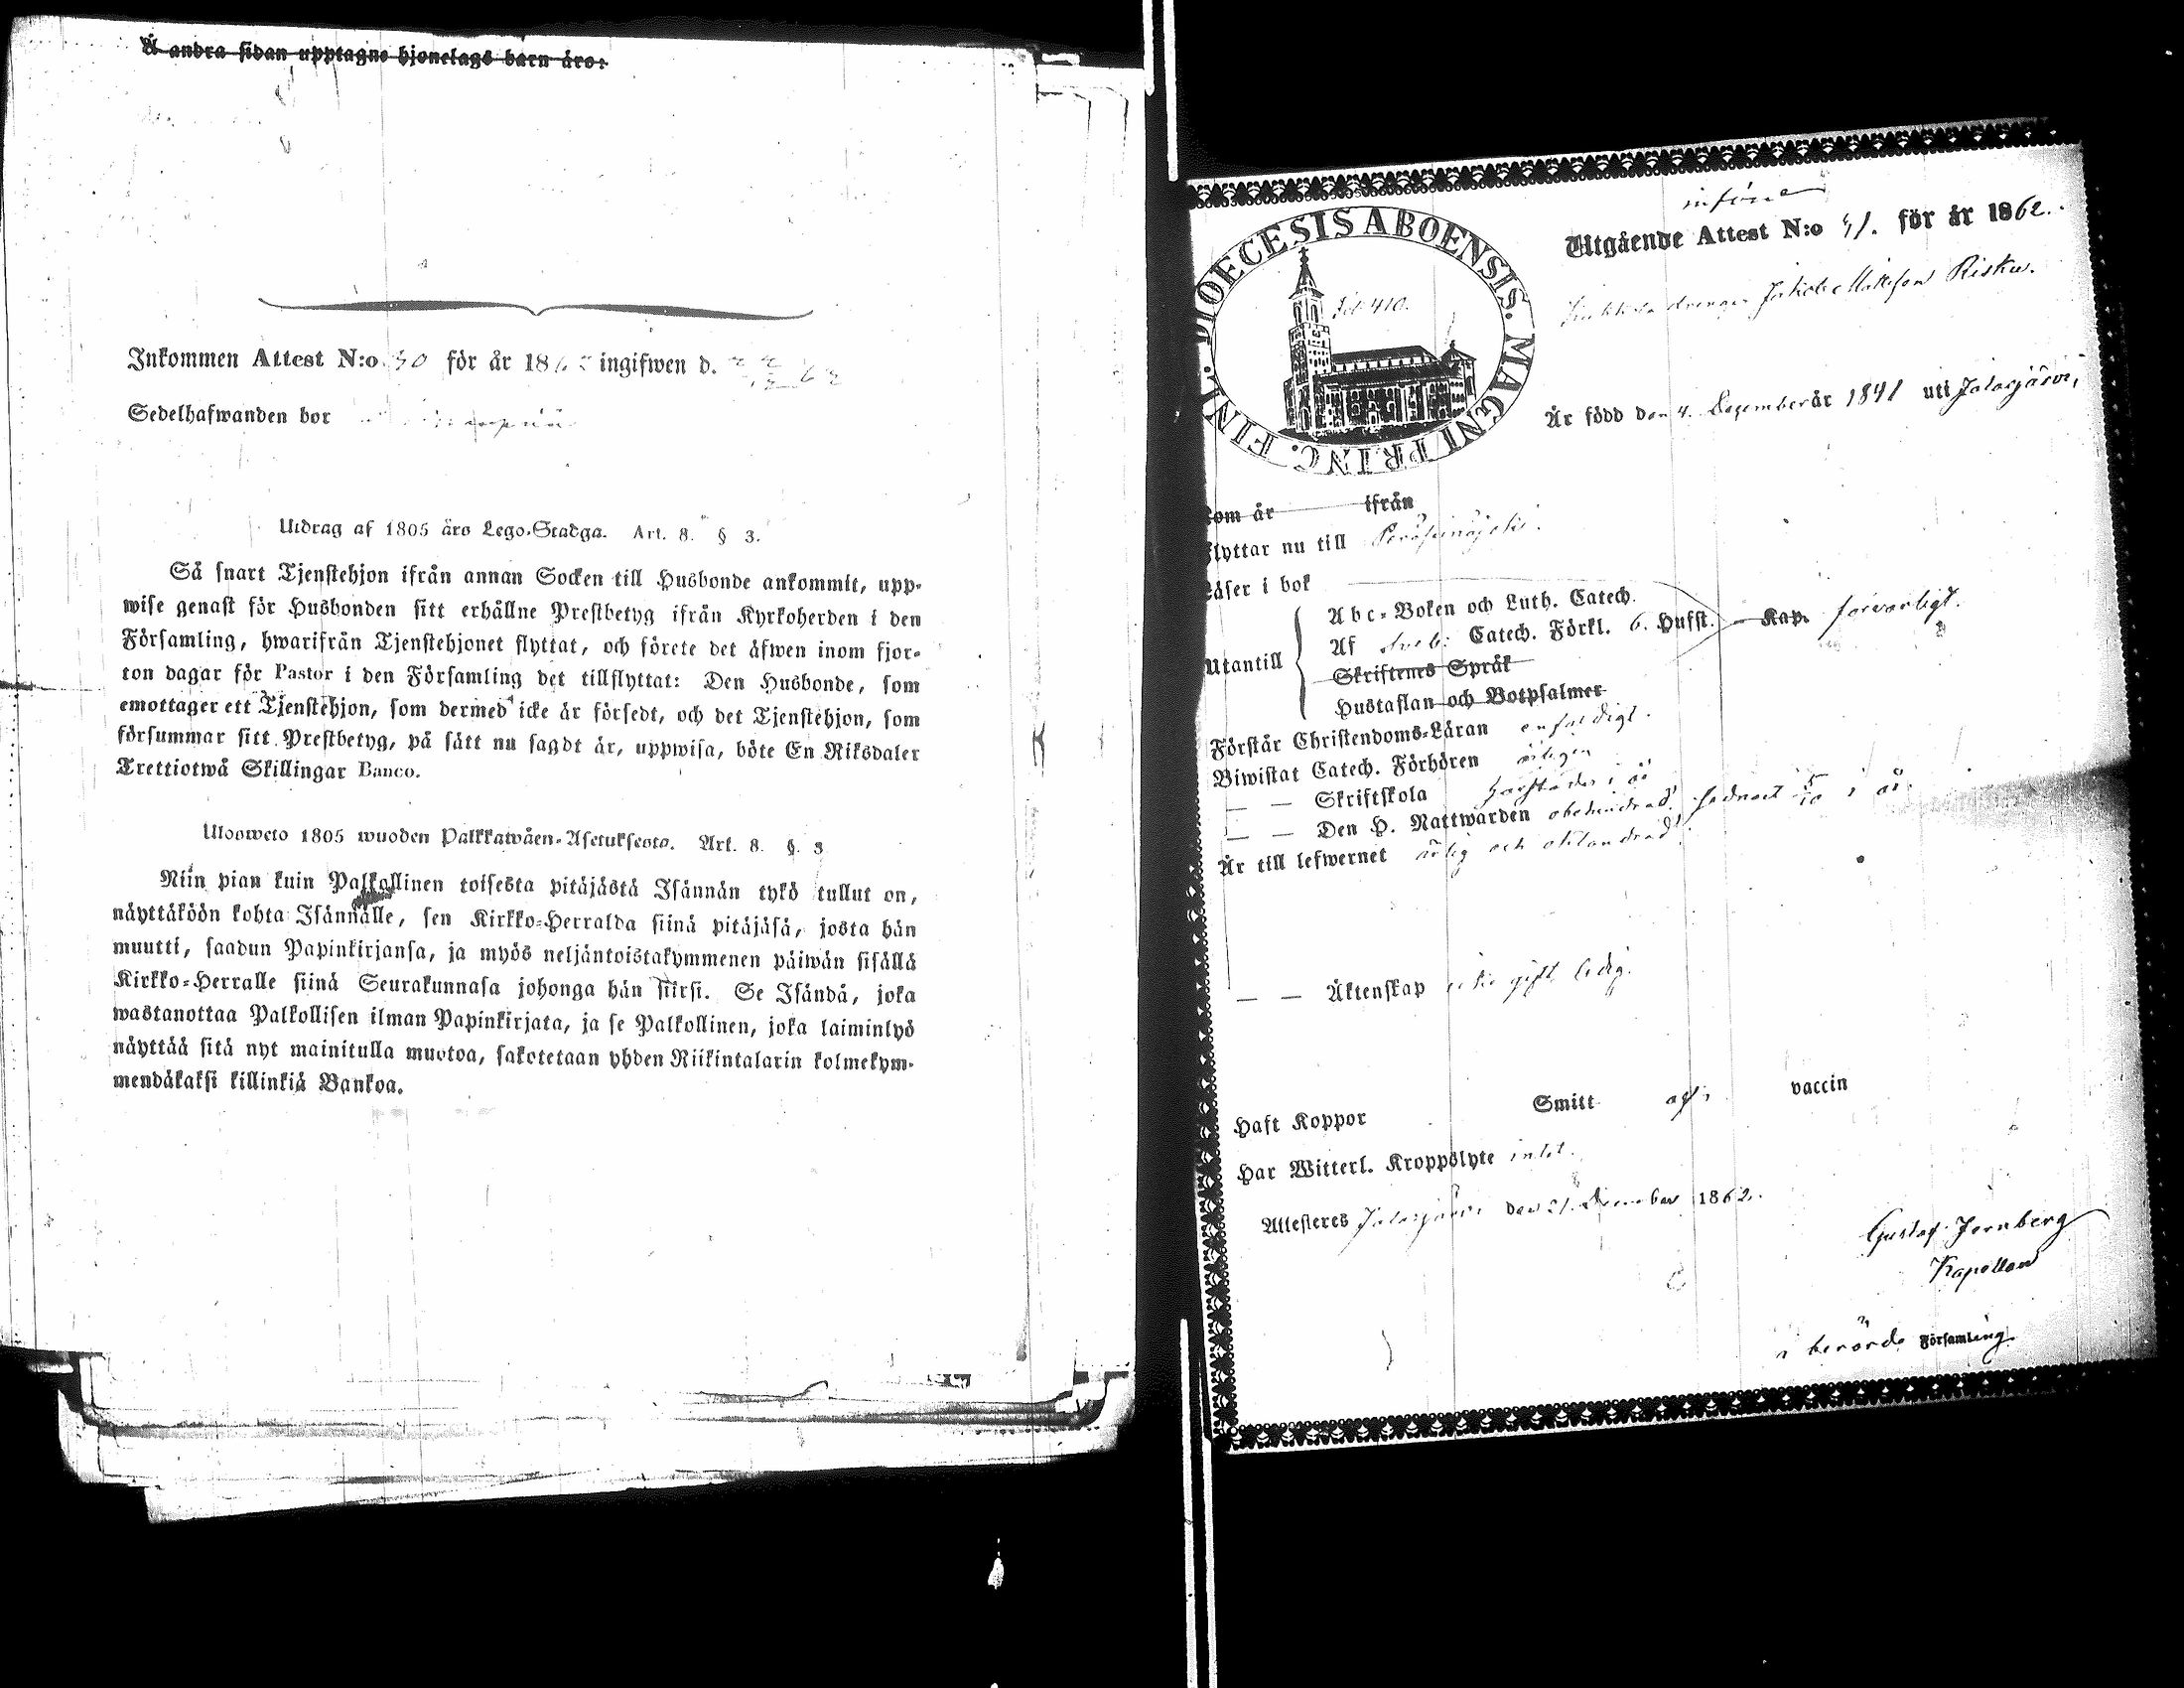 Å andra sidan upptagne hjonelags barn äro:
Inkommen Attest N:o 40 för år 186 ingifwen d.
Sedelhafwanden bor
Utdrag af 1805 års Lego-Stadga. Art. 8. § 3.
Så snart Tjenstehjon ifrån annan Socken till Husbonde ankommit, upp-
wise genast för Husbonden sitt erhållne Prestbetyg ifrån Kyrkoherden i den
Församling, hwarifrån Tjenstehjonet flyttat, och förete det äfwen inom fjor-
ton dagar för Pastor i den Församling det tillflyttat: Den Husbonde, som
emottager ett Tjenstehjon, som dermed icke är försedt, och det Tjenstehjon, som
försummar sitt Prestbetyg, på sätt nu sagdt är, uppwisa, böte En Riksdaler
Trettiotwå Skillingar Banco.
Ulosweto 1805 wuoden Palkkawäen-Asetuksesta. Art. 8. §. 3
Niin pian kuin Palkollinen toisesta pitäjästä Isännän tykö tullut on,
näyttäköön kohta Isännälle, sen Kirkko-Herralda siinä pitäjäsä, josta hän
muutti, saadun Papinkirjansa, ja myös neljäntoistakymmenen päiwän sisällä
Kirkko-Herralle siinä Seurakunnasa johonga hän siirsi. Se Isändä, joka
wastanottaa Palkollisen ilman Papinkirjata, ja se Palkollinen, joka laiminlyö
näyttää sitä nyt mainitulla muotoa, sakotetaan yhden Riikintalarin kolmekym-
mendäkaksi killinkiä Bankoa.
DIOECESIS ABOENSIS. MAGNI PRINC. FINL.
Fol. 410.
Utgående Attest N:o 41. för år 1862.
drengen Jakob Mattsson Risku.
Är född den 4. Dezember år 1841 uti Jalasjärvi,
Kom år ifrån
Flyttar nu till Peräseinäjoki.
Läser i bok
Utantill
Abc-Boken och Luth. Catech.
Af Sveb: Catech. Förkl. 6. Hufst. Kap. försvarligt.
Skriftenes Språk
Hustaflan och Botpsalmer
Förstår Christendoms-Läran enfaldigt.
Biwistat Catech. Förhören årligen
— — Skriftskola i år
— — Den H. Nattwarden obehindrad, sednast 5/10 i år.
Är till lefwernet ärlig och oklandrad.
— — Äktenskap icke gift, ledig.
Haft Koppor Smitt af vaccin
Har Witterl. Kroppslyte intet.
Attesteres Jalasjärvi den 21. December 1862.
Gustaf Jernberg
Kapellan
i berörde Församling.